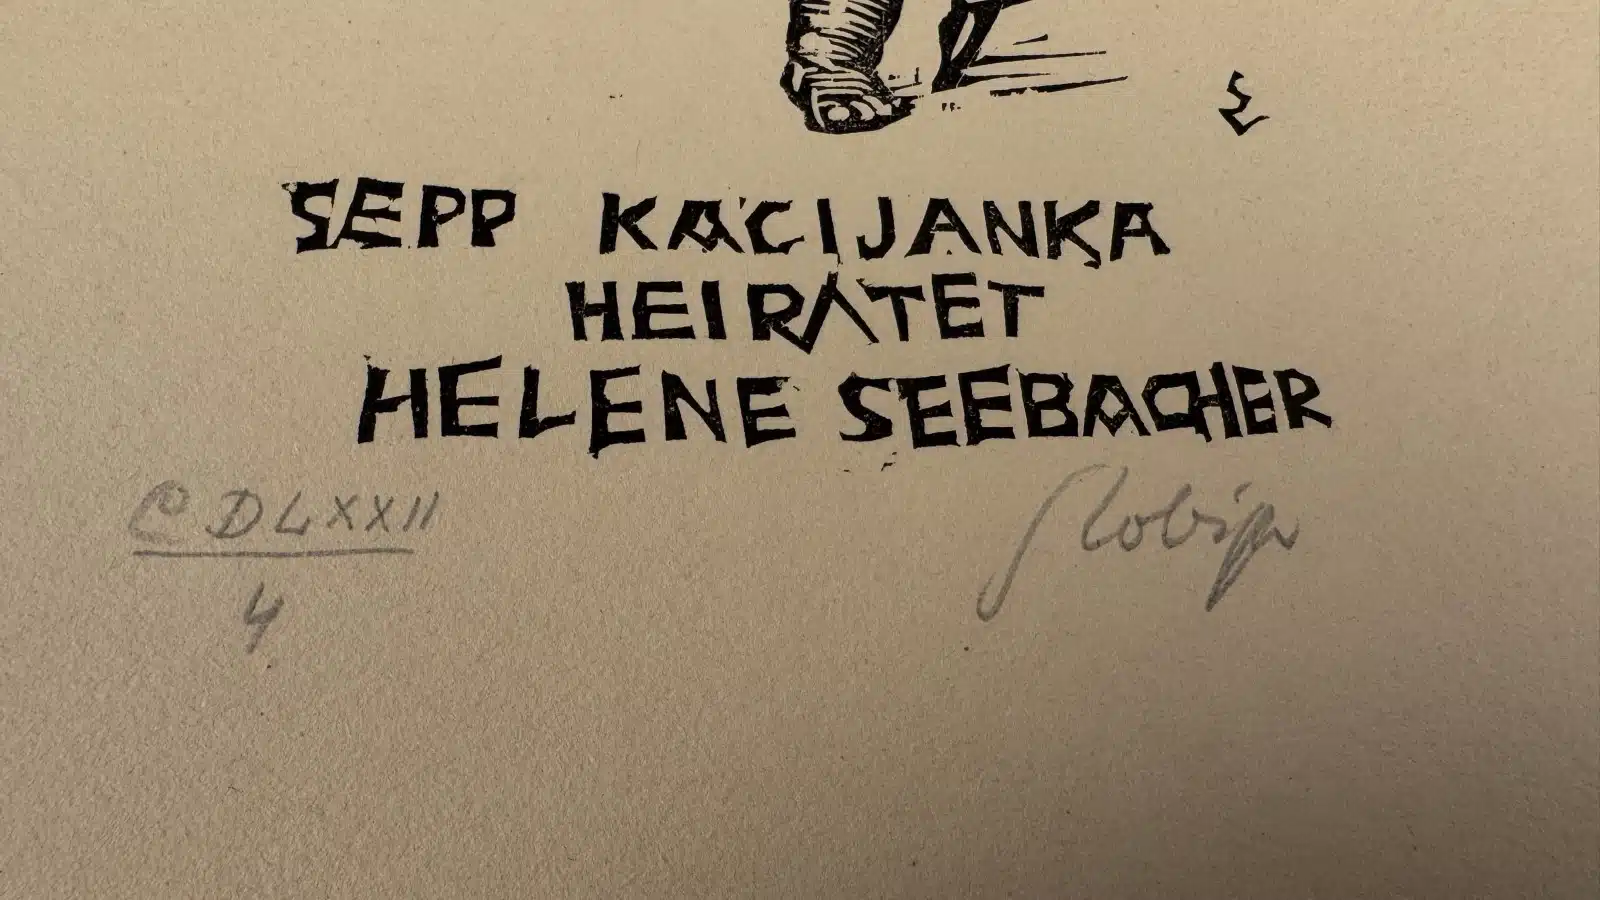 SEPP KACIJANKA
HEIRATET
HELENE SEEBACHER
CDLXXII
4